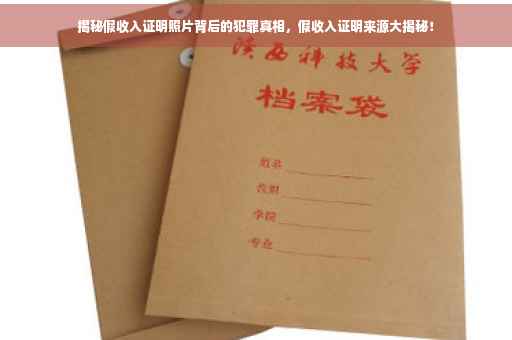 揭秘假收入证明照片背后的犯罪真相，假收入证明来源大揭秘！
陕西科技大学
档案袋
姓名
学院
专业